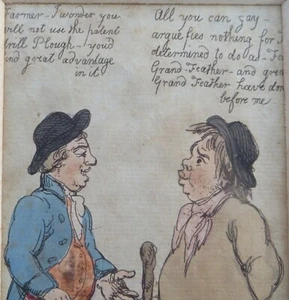 Farmer - I wonder you
will not use the patent
Drill Plough - you'd
find great advantage
in it
All you can say -
argue fies nothing for I
determined to do as - Fa
Grand - Feather - and grea
Grand Feather have don
before me